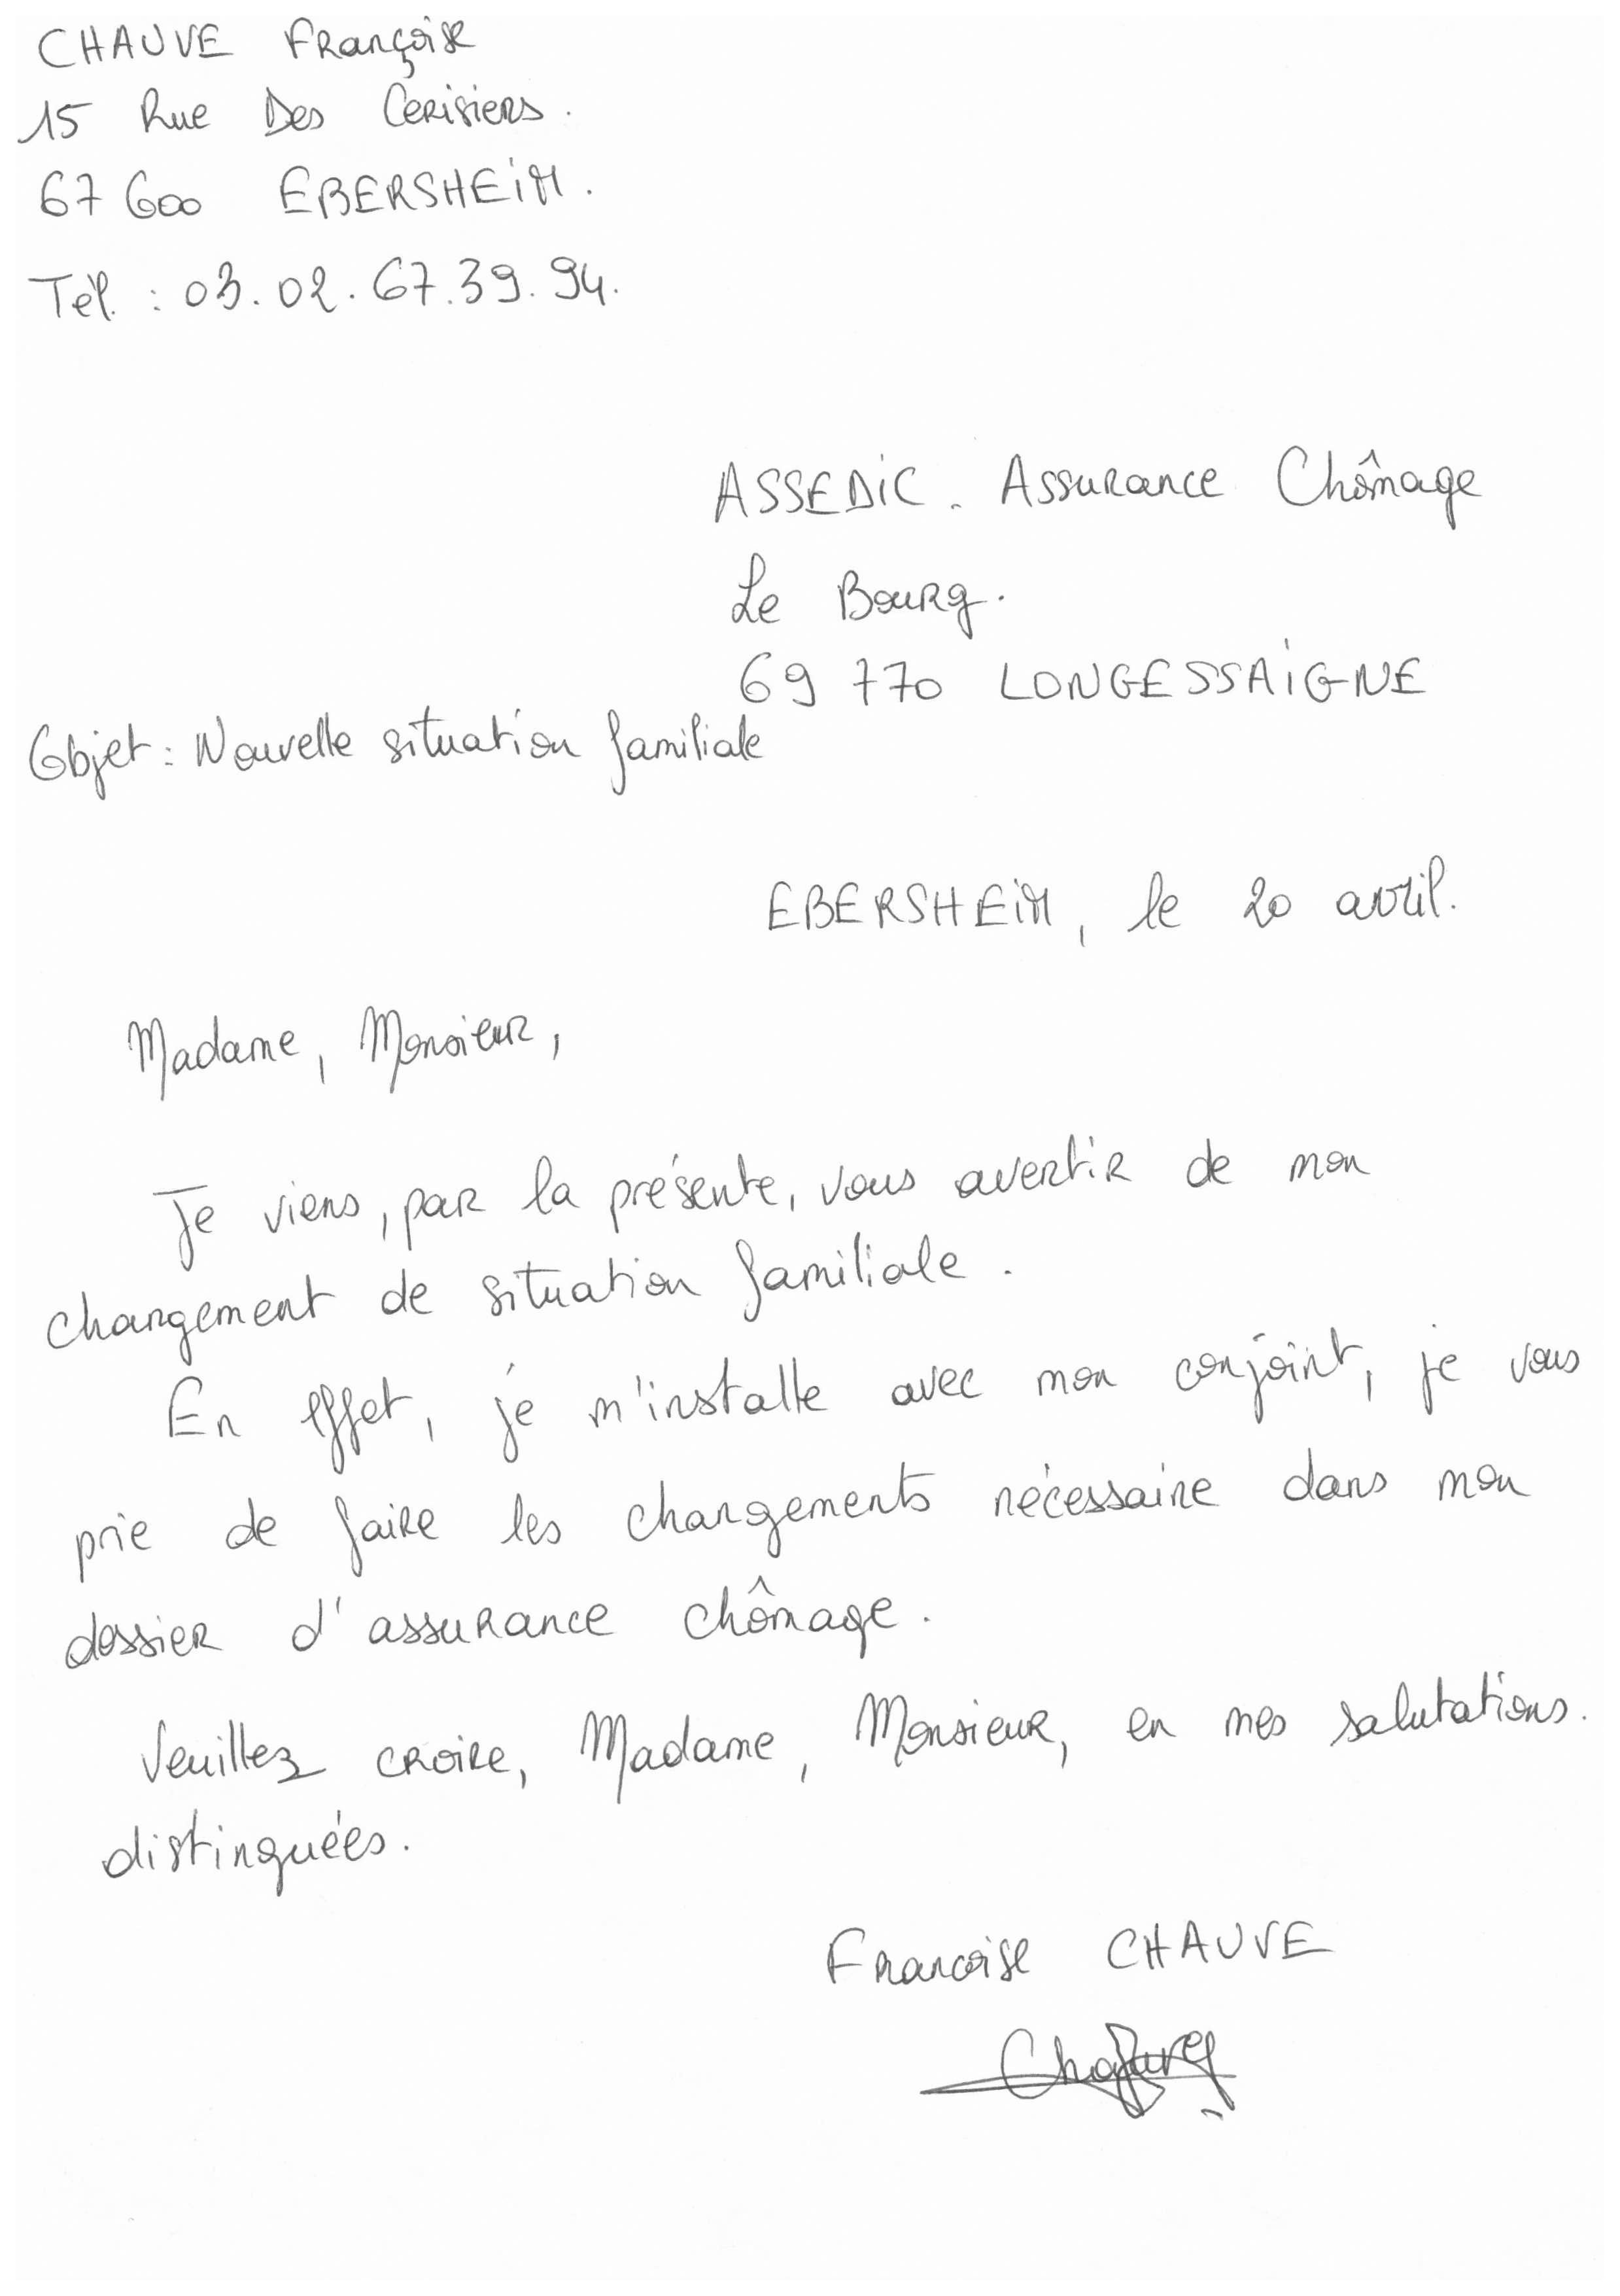 CHAUVE Françoise
15 Rue Des Cerisiers.
67 600 EBERSHEIM.
Tél. : 03.02.67.39.94.
ASSEDIC. Assurance Chômage
Le Bourg.
69 770 LONGESSAIGNE
Objet : Nouvelle situation familiale
EBERSHEIM, le 20 avril.
Madame, Monsieur,
Je viens, par la présente, vous avertir de mon
changement de situation familiale.
En effet, je m'installe avec mon conjoint, je vous
prie de faire les changements nécessaire dans mon
dossier d'assurance chômage.
Veuillez croire, Madame, Monsieur, en mes salutations.
distinguées.
Francoise CHAUVE